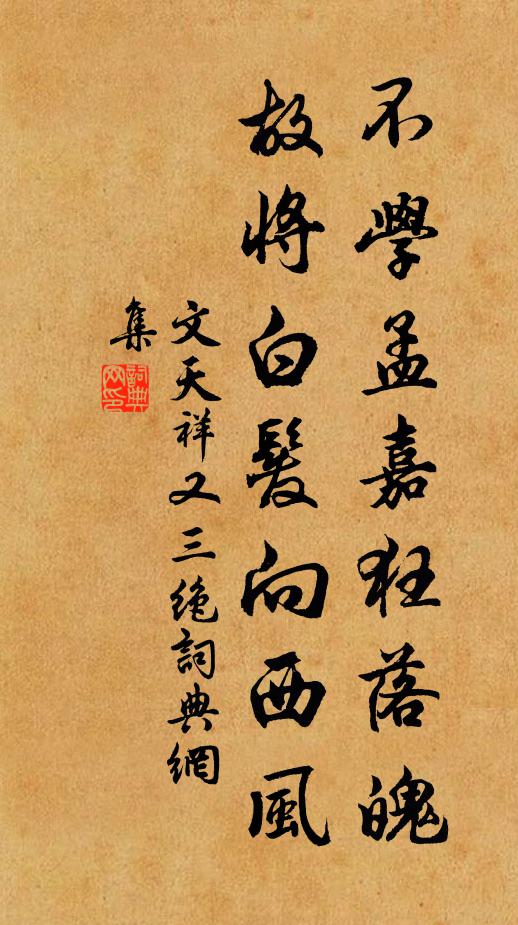 不學孟嘉狂落魄
故將白髮向西風
文天祥又三絶詞典網
集
詞典網印